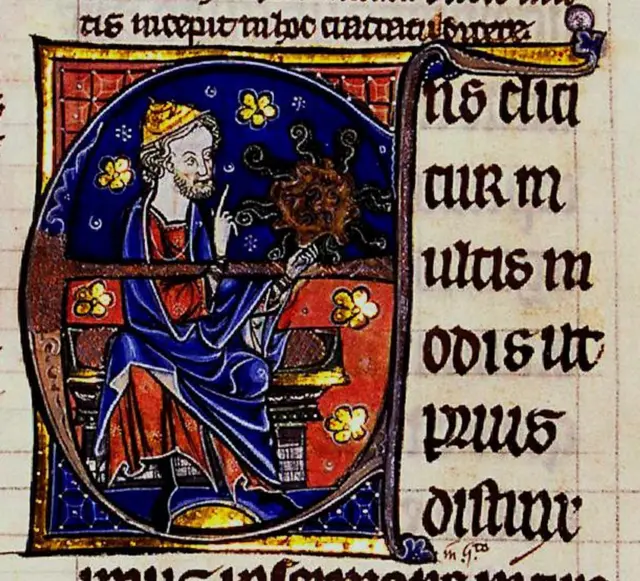 tis incepit in hoc tractatu dicere.
Ens dici
tur m
ultis m
odis ut
prius
distinx